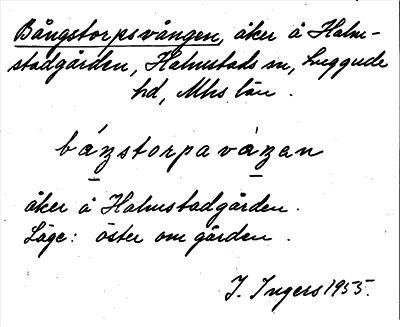 Bångstorpsvången, åker å Halm-
stadgården, Halmstads sn, Luggude
hd, Mhs län.
báŋstorpaváŋan
åker å Halmstadgården.
Läge: öster om gården.
I. Ingers 1955.